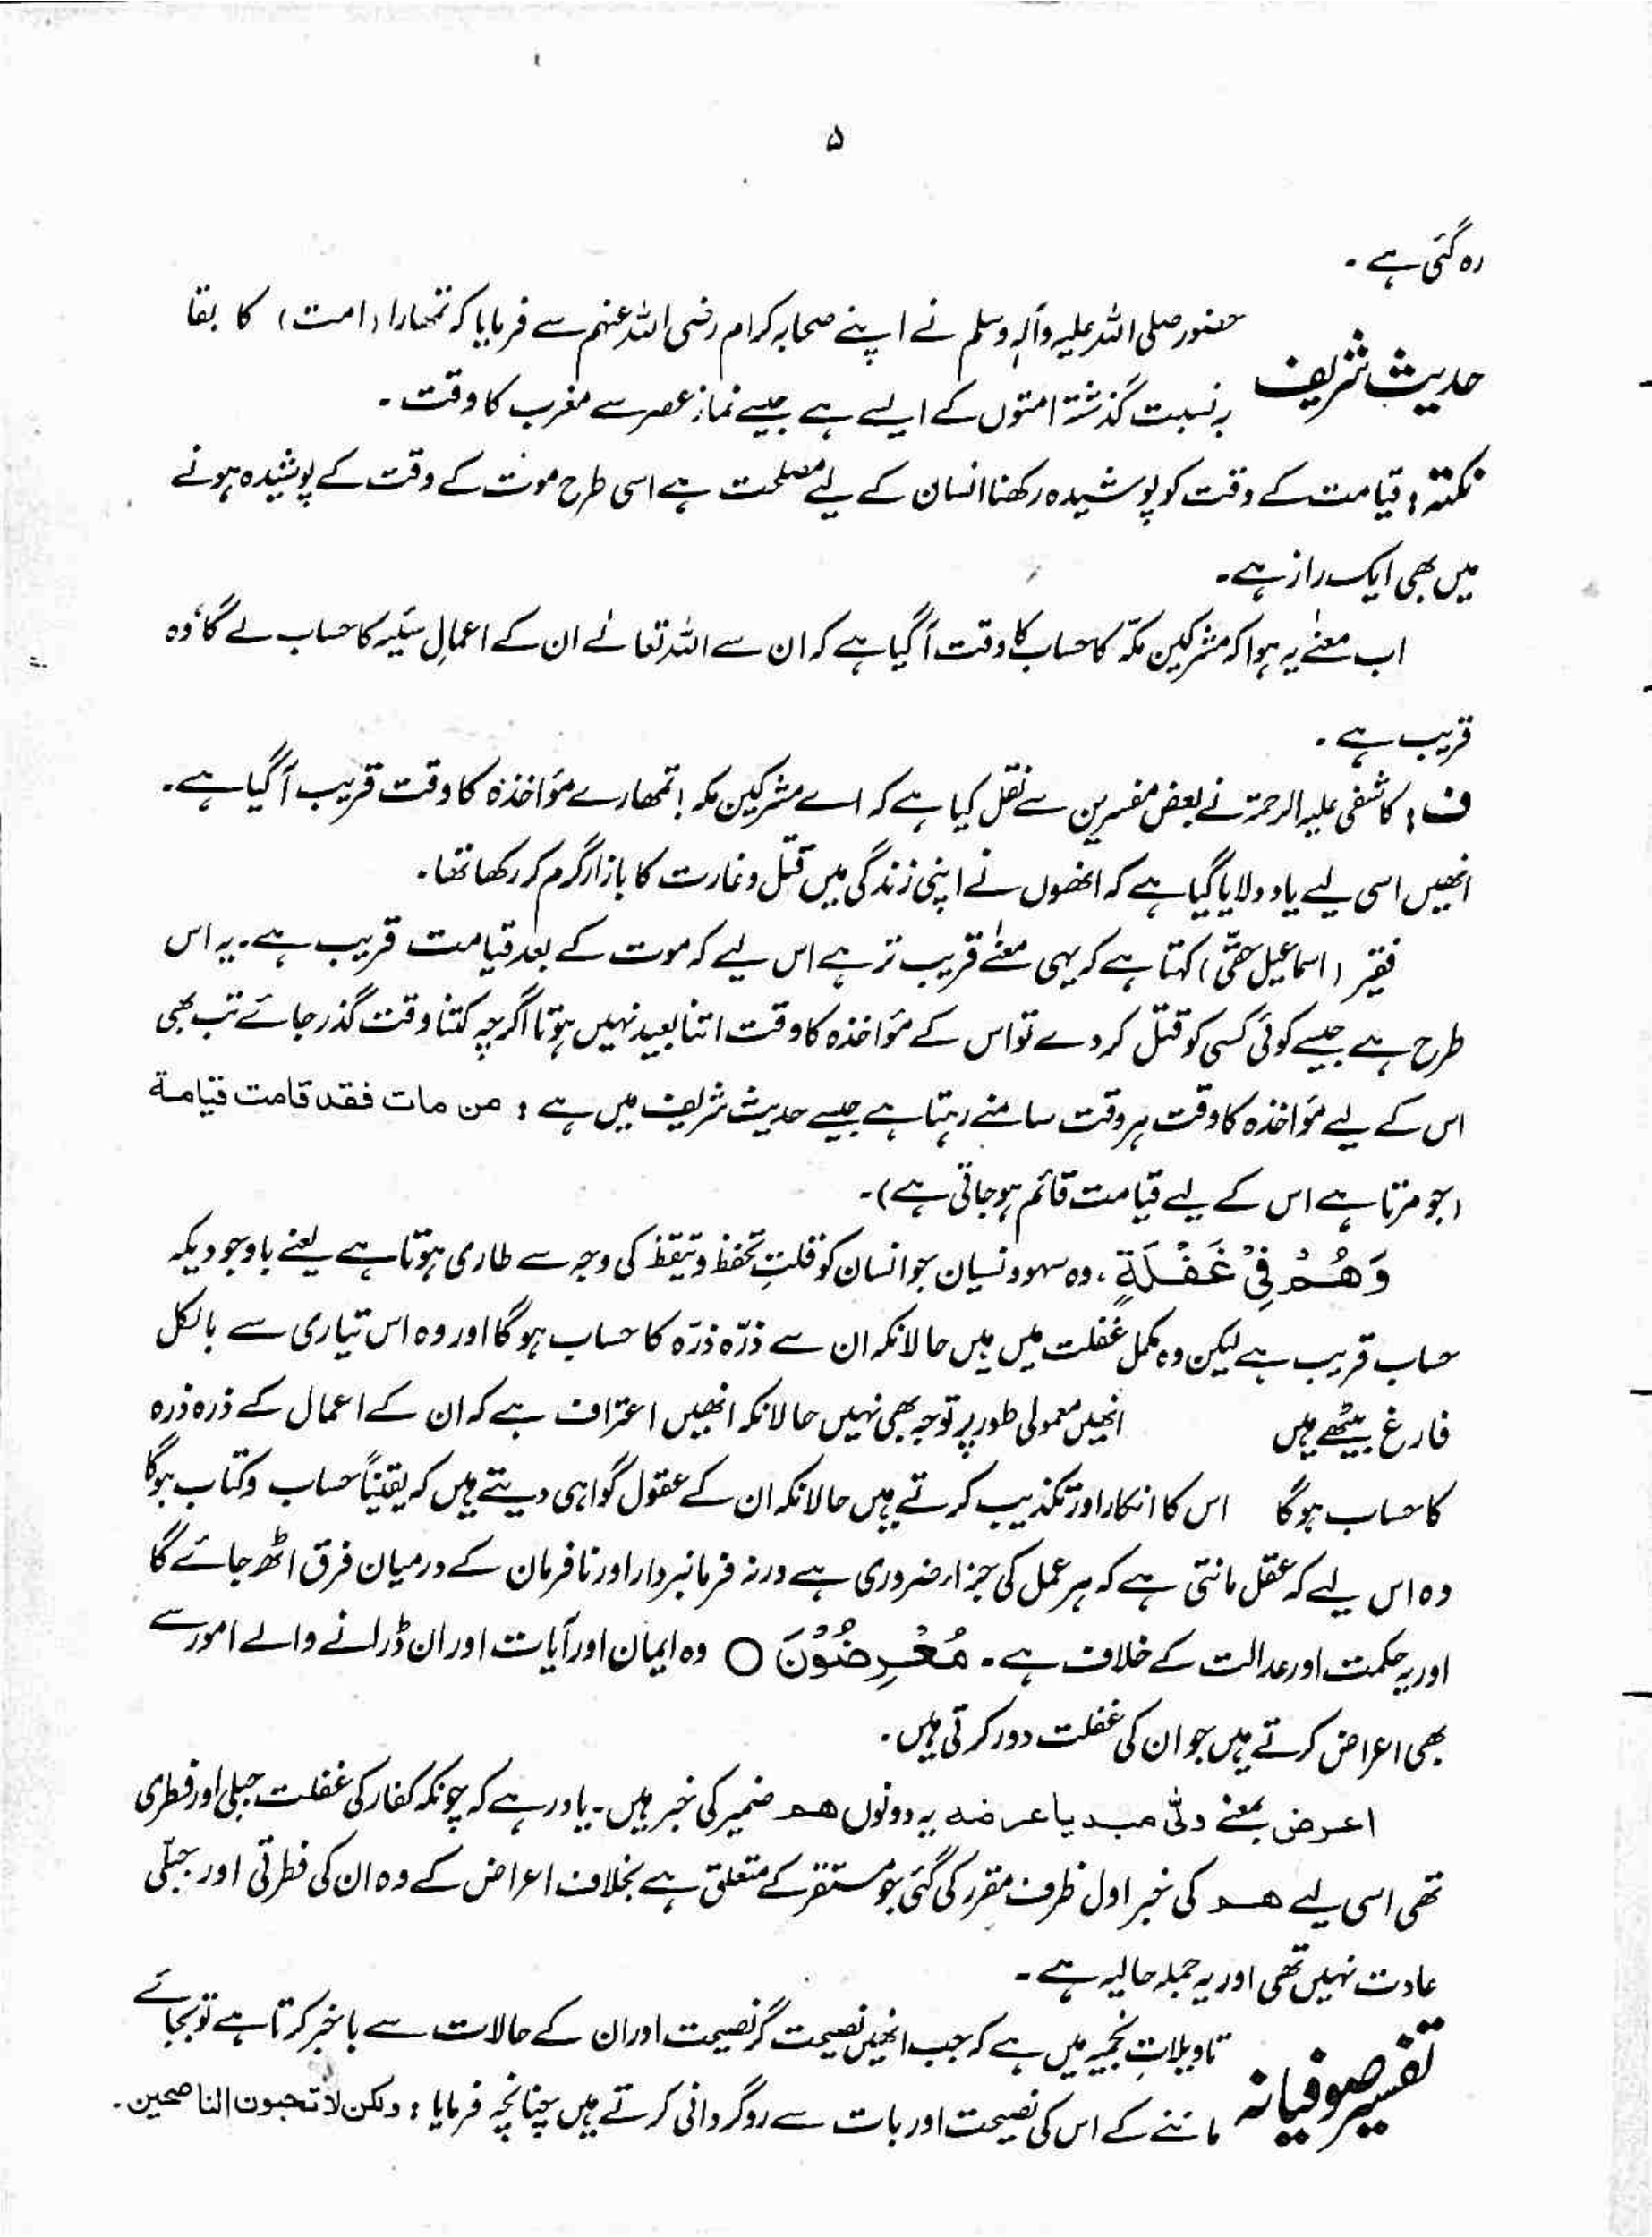 ۵
رہ گئی ہے ۔
حدیث شریف حضور صلی اللہ علیہ وآلہٖ وسلم نے اپنے صحابہ کرام رضی اللہ عنہم سے فرمایا کہ تمھارا (امت) کا بقا
بہ نسبت گذشتہ امتوں کے ایسے ہے جیسے نماز عصر سے مغرب کا وقت ۔
نکتہ : قیامت کے وقت کو پوشیدہ رکھنا انسان کے لیے مصلحت ہے اسی طرح موت کے وقت کے پوشیدہ ہونے
میں بھی ایک راز ہے۔
اب معنےٰ یہ ہوا کہ مشرکین مکہّ کا حساب کا وقت آ گیا ہے کہ ان سے اللہ تعالےٰ ان کے اعمالِ سیّئہ کا حساب لے گا، وہ
قریب ہے ۔
ف : کاشفی علیہ الرحمۃ نے بعض مفسرین سے نقل کیا ہے کہ اے مشرکین مکہ ! تمھارے مؤاخذہ کا وقت قریب آ گیا ہے۔
انھیں اسی لیے یاد دلایا گیا ہے کہ انھوں نے اپنی زندگی میں قتل و غارت کا بازار گرم کر رکھا تھا۔
فقیر (اسماعیل حقّی) کہتا ہے کہ یہی معنےٰ قریب تر ہے اس لیے کہ موت کے بعد قیامت قریب ہے۔ یہ اس
طرح ہے جیسے کوئی کسی کو قتل کر دے تو اس کے مؤاخذہ کا وقت اتنا بعید نہیں ہوتا اگرچہ کتنا وقت گذر جائے تب بھی
اس کے لیے مؤاخذہ کا وقت ہر وقت سامنے رہتا ہے جیسے حدیث شریف میں ہے : من مات فقد قامت قیامۃ
(جو مرتا ہے اس کے لیے قیامت قائم ہو جاتی ہے)۔
وَهُمْ فِیْ غَفْلَةٍ ، وہ سہو و نسیان جو انسان کو قلتِ تحفظ و تیقظ کی وجہ سے طاری ہوتا ہے یعنے باوجودیکہ
حساب قریب ہے لیکن وہ مکمل غفلت میں ہیں حالانکہ ان سے ذرّہ ذرّہ کا حساب ہو گا اور وہ اس تیاری سے بالکل
فارغ بیٹھے ہیں انھیں معمولی طور پر توجہ بھی نہیں حالانکہ انھیں اعتراف ہے کہ ان کے اعمال کے ذرہ ذرہ
کا حساب ہو گا اس کا انکار اور تکذیب کرتے ہیں حالانکہ ان کے عقول گواہی دیتے ہیں کہ یقیناً حساب و کتاب ہو گا
وہ اس لیے کہ عقل مانتی ہے کہ ہر عمل کی جزاء ضروری ہے ورنہ فرمانبردار اور نافرمان کے درمیان فرق اٹھ جائے گا
اور یہ حکمت اور عدالت کے خلاف ہے۔ مُعْرِضُوْنَ ○ وہ ایمان اور آیات اور ان ڈرانے والے امور سے
بھی اعراض کرتے ہیں جو ان کی غفلت دور کرتی ہیں۔
اعرض بمعنے ولّٰی مبدیا عرضہ یہ دونوں ھم ضمیر کی خبر ہیں۔ یاد رہے کہ چونکہ کفار کی غفلت جبلی اور فطری
تھی اسی لیے ھم کی خبر اول ظرف مقرر کی گئی جو مستقر کے متعلق ہے بخلاف اعراض کے وہ ان کی فطرتی اور جبلّی
عادت نہیں تھی اور یہ جملہ حالیہ ہے ۔
تفسیر صوفیانہ تاویلاتِ نجمیہ میں ہے کہ جب انھیں نصیحت گر نصیحت اور ان کے حالات سے باخبر کرتا ہے تو بجائے
ماننے کے اس کی نصیحت اور بات سے روگردانی کرتے ہیں چنانچہ فرمایا : ولکن لا تحبون الناصحین ۔